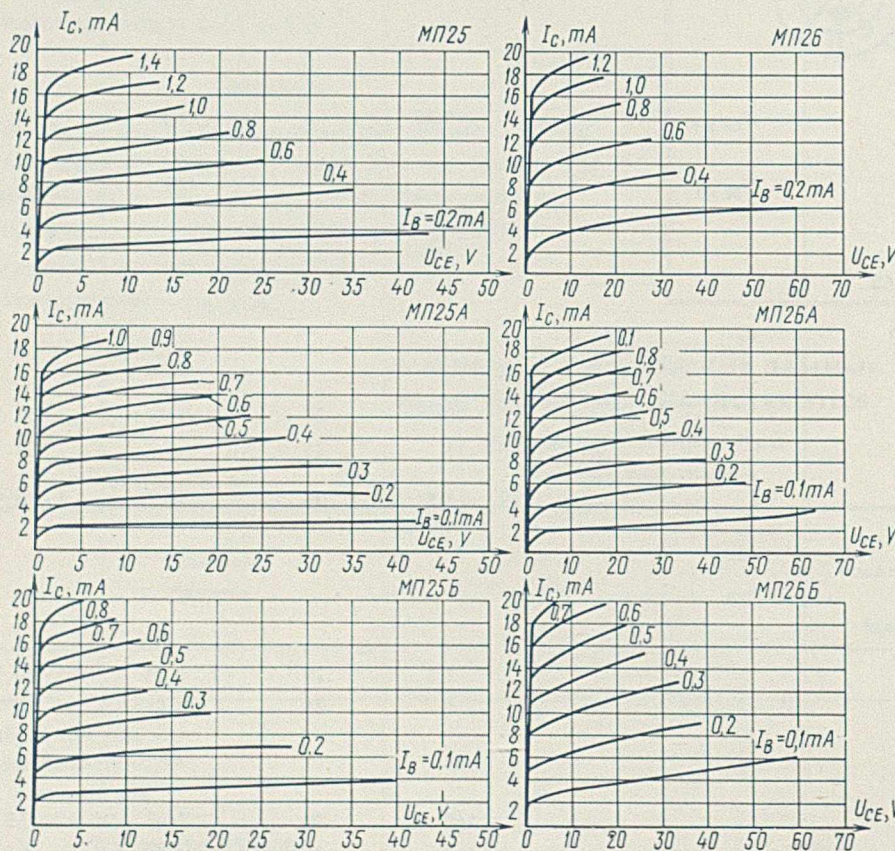 I_C, mA МП25
20
18
16
14
12
10
8
6
4
2
1,4
1,2
1,0
0,8
0,6
0,4
I_B=0.2mA
U_CE, V
0 5 10 15 20 25 30 35 40 45 50
I_C, mA МП26
20
18
16
14
12
10
8
6
4
2
1,2
1,0
0,8
0,6
0,4
I_B=0,2mA
U_CE, V
0 10 20 30 40 50 60 70
I_C, mA МП25А
20
18
16
14
12
10
8
6
4
2
1,0 0,9
0,8
0,7
0,6
0,5
0,4
0,3
0,2
I_B=0.1mA
U_CE, V
0 5 10 15 20 25 30 35 40 45 50
I_C, mA МП26А
20
18
16
14
12
10
8
6
4
2
0,1
0,8
0,7
0,6
0,5
0,4
0,3
0,2
I_B=0.1mA
U_CE, V
0 10 20 30 40 50 60 70
I_C, mA МП25Б
20
18
16
14
12
10
8
6
4
2
0,8
0,7 0,6
0,5
0,4
0,3
0,2
I_B=0,1mA
U_CE, V
0 5. 10 15 20 25 30 35 40 45 50
I_C, mA МП26Б
20
18
16
14
12
10
8
6
4
2
0,7 0,6
0,5
0,4
0,3
0,2
I_B=0,1mA
U_CE, V
0 10 20 30 40 50 60 70